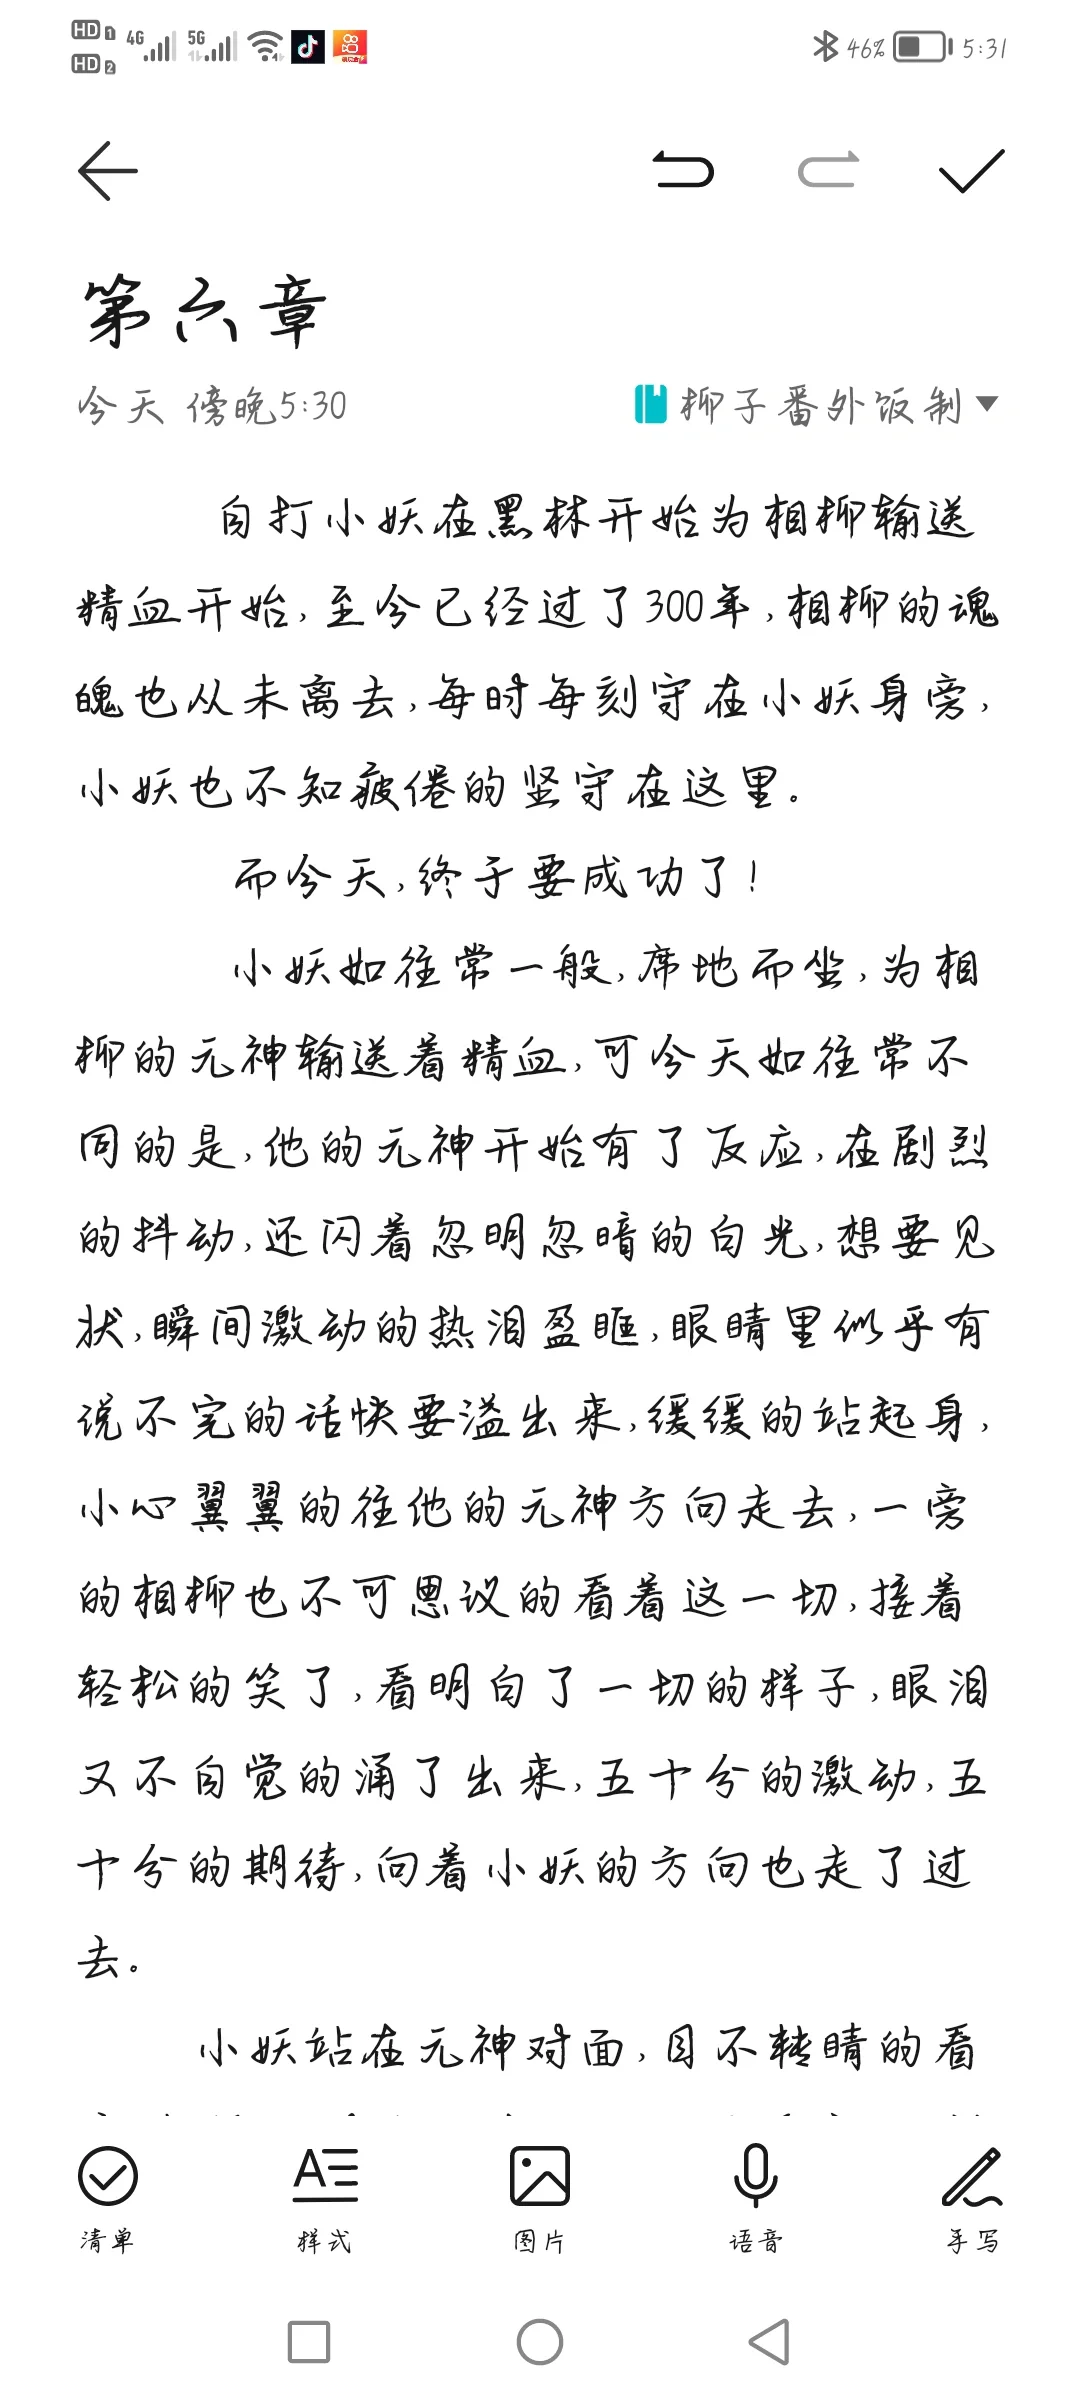 HD 1 4G 5G 46% 5:31
HD 2
第六章
今天 傍晚5:30 柳子番外饭制
自打小妖在黑林开始为相柳输送
精血开始,至今已经过了300年,相柳的魂
魄也从未离去,每时每刻守在小妖身旁,
小妖也不知疲倦的坚守在这里。
而今天,终于要成功了!
小妖如往常一般,席地而坐,为相
柳的元神输送着精血,可今天如往常不
同的是,他的元神开始有了反应,在剧烈
的抖动,还闪着忽明忽暗的白光,想要见
状,瞬间激动的热泪盈眶,眼睛里似乎有
说不完的话快要溢出来,缓缓的站起身,
小心翼翼的往他的元神方向走去,一旁
的相柳也不可思议的看着这一切,接着
轻松的笑了,看明白了一切的样子,眼泪
又不自觉的涌了出来,五十分的激动,五
十分的期待,向着小妖的方向也走了过
去。
小妖站在元神对面,目不转睛的看
清单 样式 图片 语音 手写